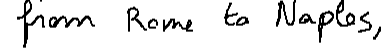 from Rome to Naples,